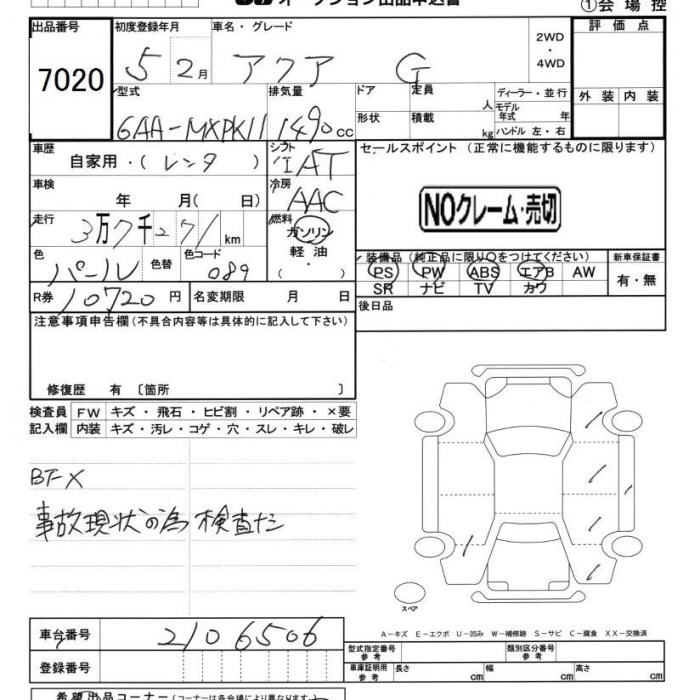 オークション出品申込書
①会場控
出品番号 初度登録年月 車名・グレード 評価点
7020 5 2月 アクア G 2WD・4WD
型式 排気量 ドア 定員 人 ディーラー・並行 外装 内装
6AA-MXPK11 1490cc 形状 積載 kg モデル年式 年
ハンドル 左・右
車歴 自家用・(レンタ) シフト IAT セールスポイント (正常に機能するものに限ります)
車検 年 月(日) 冷房 AAC
NOクレーム・売切
走行 3万7千271km 燃料 ガソリン
軽油
・( )
色 パール 色替 色コード 089 装備品 (純正品に限り○をつけてください) 新車保証書
PS PW ABS エアB AW 有・無
SR ナビ TV カワ
R券 10720円 名変期限 月 日 後日品
注意事項申告欄(不具合内容等は具体的に記入して下さい)
修復歴 有 〔箇所 〕
検査員 FW キズ・飛石・ヒビ割・リペア跡・×要
記入欄 内装 キズ・汚レ・コゲ・穴・スレ・キレ・破レ
BT-X
事故現状の為 検査だ
スペア
A-キズ E-エクボ U-凹み W-補修跡 S-サビ C-腐食 XX-交換済
車台番号 2106506
型式指定番号 参考 類別区分番号 参考
登録番号 車庫証明用 参考 長さ cm 幅 cm 高さ cm
希望出品コーナー(コーナーは各会場により異なります